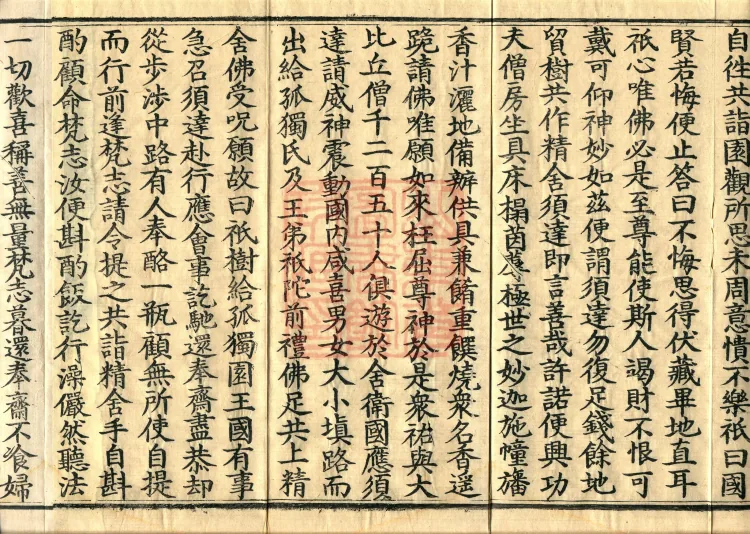 自徃共詣園觀所思未周意憒不樂祇曰國
賢若悔便止答曰不悔思得伏藏畢地直耳
祇心唯佛必是至尊能使斯人竭財不恨可
戴可仰神妙如茲便謂須達勿復足錢餘地
貿樹共作精舍須達即言善哉許諾便興功
夫僧房坐具床榻茵蓐極世之妙迦施幢旛
香汁灑地備辦供具兼餚重饌燒衆名香遥
跪請佛唯願如來枉屈尊神於是衆祐與大
比丘僧千二百五十人俱遊於舍衛國應須
達請威神震動國内咸喜男女大小填路而
出給孤獨氏及王弟祇陀前禮佛足共上精
舍佛受呪願故曰祇樹給孤獨園王國有事
急召須達赴行應會事訖馳還奉齋盡恭却
從步涉中路有人奉酪一瓶顧無所使自提
而行前逢梵志請令提之共詣精舍手自斟
酌顧命梵志汝便斟酌飯訖行澡儼然聽法
一切歡喜稱善無量梵志暮還奉齋不飡婦